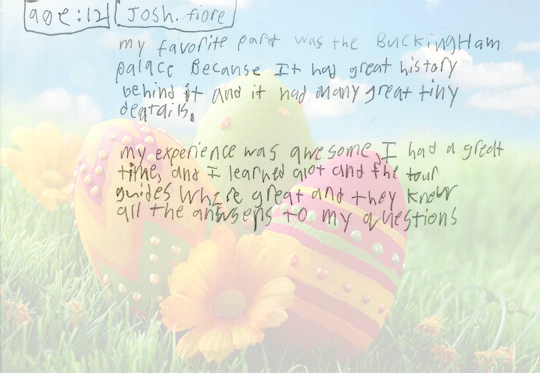 age:12 Josh.fiore
my favorite part was the Buckingham
palace Because It had great history
behind it and it had many great tiny
deatails.
my experience was awesome, I had a great
times and I learned alot and the tour
guides Where great and they know
all the answers to my questions